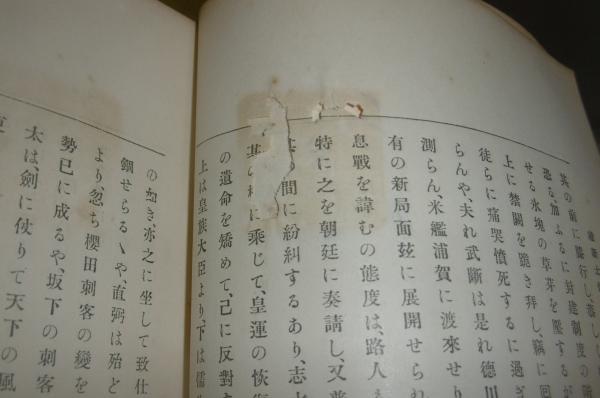 其の前に膝行し、恭しく
恐る、加ふるに封建制度の
せる氷塊の草芽を壓するが
上に禁闕を跪き拜し、竊に回
徒らに痛哭憤死するに過ぎ
らんや、夫れ武斷は是れ德川
測らん、米艦浦賀に渡來せり
有の新局面玆に展開せられ
息戰を諱むの態度は、路人
特に之を朝廷に奏請し、又普
の間に紛糾するあり、志士
に乘じて、皇運の恢
の遺命を矯めて、己に反對
上は皇族大臣より、下は儒
の如き、亦之に坐して致仕
錮せらるゝや、直弼は殆ど
より、忽ち櫻田刺客の變を
勢已に成るや、坂下の刺客
太は、劍に仗りて天下の風